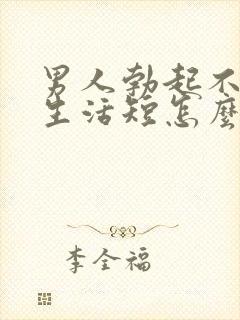 男人勃起不
生活短怎麼
李全福